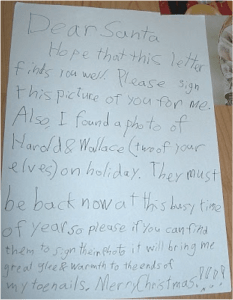 Dear Santa
Hope that this letter
finds you well. Please sign
this picture of you for me.
Also, I found a photo of
Harold & Wallace (two of your
elves) on holiday. They must
be back now at this busy time
of year so please if you can find
them to sign their photo it will bring me
great glee & warmth to the ends of
my toenails. Merry Christmas.